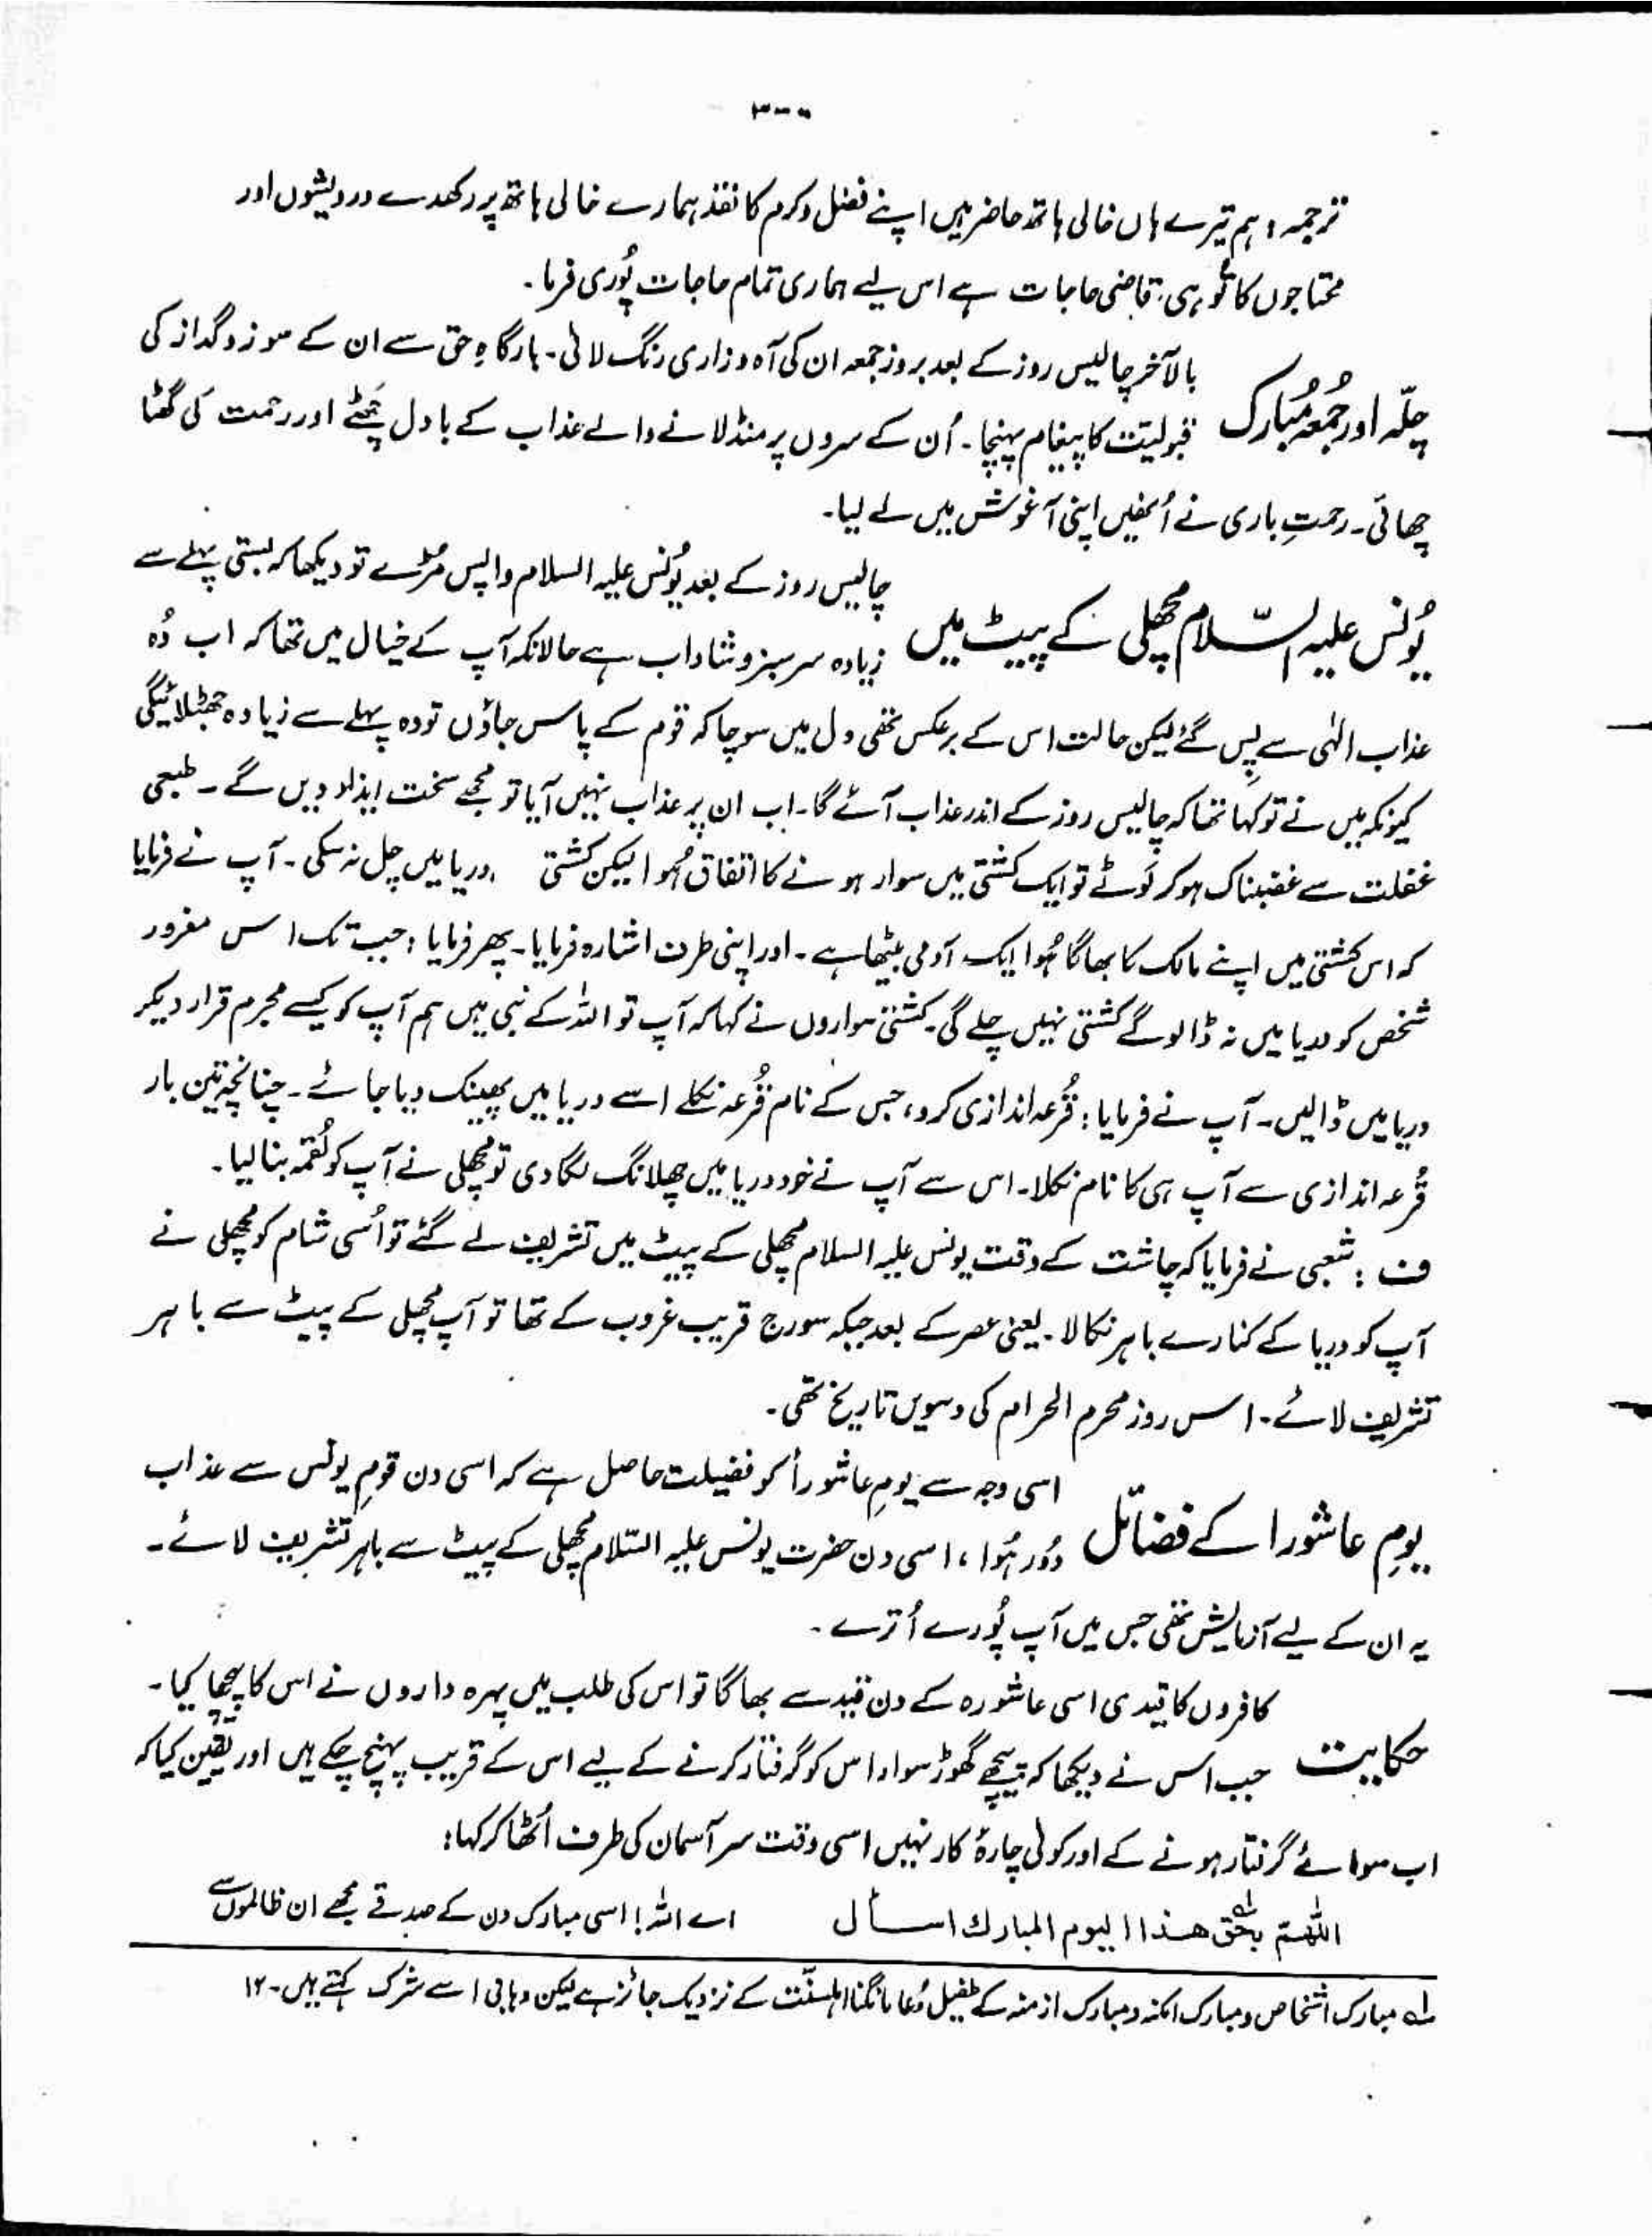 ۳۰۰
ترجمہ: ہم تیرے ہاں خالی ہاتھ حاضر ہیں اپنے فضل و کرم کا نقذ ہمارے خالی ہاتھ پر رکھدے درویشوں اور
محتاجوں کا تُو ہی قاضی حاجات ہے اس لیے ہماری تمام حاجات پُوری فرما۔
بالآخر چالیس روز کے بعد بروز جمعہ ان کی آہ و زاری رنگ لائی۔ بارگاہِ حق سے ان کے سوز و گداز کی
چلّہ اور جُمعہ مُبارک قبولیّت کا پیغام پہنچا۔ اُن کے سروں پر منڈلانے والے عذاب کے بادل چَھٹے اور رحمت کی گھٹا
چھائی۔ رحمتِ باری نے اُنھیں اپنی آغوش میں لے لیا۔
چالیس روز کے بعد یُونس علیہ السلام واپس مڑے تو دیکھا کہ بستی پہلے سے
یُونس علیہ السّلام مچھلی کے پیٹ میں زیادہ سرسبز و شاداب ہے حالانکہ آپ کے خیال میں تھا کہ اب وُہ
عذاب الٰہی سے پِس گئے لیکن حالت اس کے برعکس تھی دل میں سوچا کہ قوم کے پاس جاؤں تو وہ پہلے سے زیادہ جھٹلائیگی
کیونکہ میں نے تو کہا تھا کہ چالیس روز کے اندر عذاب آئے گا۔ اب ان پر عذاب نہیں آیا تو مجھے سخت ایذاء دیں گے۔ طبعی
غفلت سے غضبناک ہو کر لَوٹے تو ایک کشتی میں سوار ہونے کا اتفاق ہُوا لیکن کشتی دریا میں چل نہ سکی۔ آپ نے فرمایا
کہ اس کشتی میں اپنے مالک کا بھاگا ہُوا ایک آدمی بیٹھا ہے۔ اور اپنی طرف اشارہ فرمایا۔ پھر فرمایا: جب تک اس مفرور
شخص کو دریا میں نہ ڈالو گے کشتی نہیں چلے گی۔ کشتی سواروں نے کہا کہ آپ تو اللہ کے نبی ہیں ہم آپ کو کیسے مجرم قرار دیکر
دریا میں ڈالیں۔ آپ نے فرمایا: قُرعہ اندازی کرو، جس کے نام قُرعہ نکلے اسے دریا میں پھینک دیا جائے۔ چنانچہ تین بار
قُرعہ اندازی سے آپ ہی کا نام نکلا۔ اس سے آپ نے خود دریا میں چھلانگ لگا دی تو مچھلی نے آپ کو لُقمہ بنا لیا۔
ف: شعبی نے فرمایا کہ چاشت کے وقت یونس علیہ السلام مچھلی کے پیٹ میں تشریف لے گئے تو اُسی شام کو مچھلی نے
آپ کو دریا کے کنارے باہر نکالا۔ یعنی عصر کے بعد جبکہ سورج قریب غروب کے تھا تو آپ مچھلی کے پیٹ سے باہر
تشریف لائے۔ اس روز محرم الحرام کی دسویں تاریخ تھی۔
اسی وجہ سے یومِ عاشوراُ کو فضیلت حاصل ہے کہ اسی دن قومِ یونس سے عذاب
یومِ عاشورا کے فضائل دُور ہُوا، اسی دن حضرت یونس علیہ السّلام مچھلی کے پیٹ سے باہر تشریف لائے۔
یہ ان کے لیے آزمایش تھی جس میں آپ پُورے اُترے۔
کافروں کا قیدی اسی عاشورہ کے دن قید سے بھاگا تو اس کی طلب میں پہرہ داروں نے اس کا پیچھا کیا۔
حکایت جب اس نے دیکھا کہ پیچھے گھوڑ سوار اس کو گرفتار کرنے کے لیے اس کے قریب پہنچ چکے ہیں اور یقین کیا کہ
اب سوائے گرفتار ہونے کے اور کوئی چارۂ کار نہیں اسی وقت سر آسمان کی طرف اُٹھا کر کہا:
اللّٰھم بحق ھذا الیوم المبارك اسأل اے اللہ! اسی مبارک دن کے صدقے مجھے ان ظالموں سے
لہ مبارک اشخاص و مبارک امکنہ و مبارک ازمنہ کے طفیل دُعا مانگنا اہلسنّت کے نزدیک جائز ہے لیکن وہابی اسے شرک کہتے ہیں۔ ۱۲